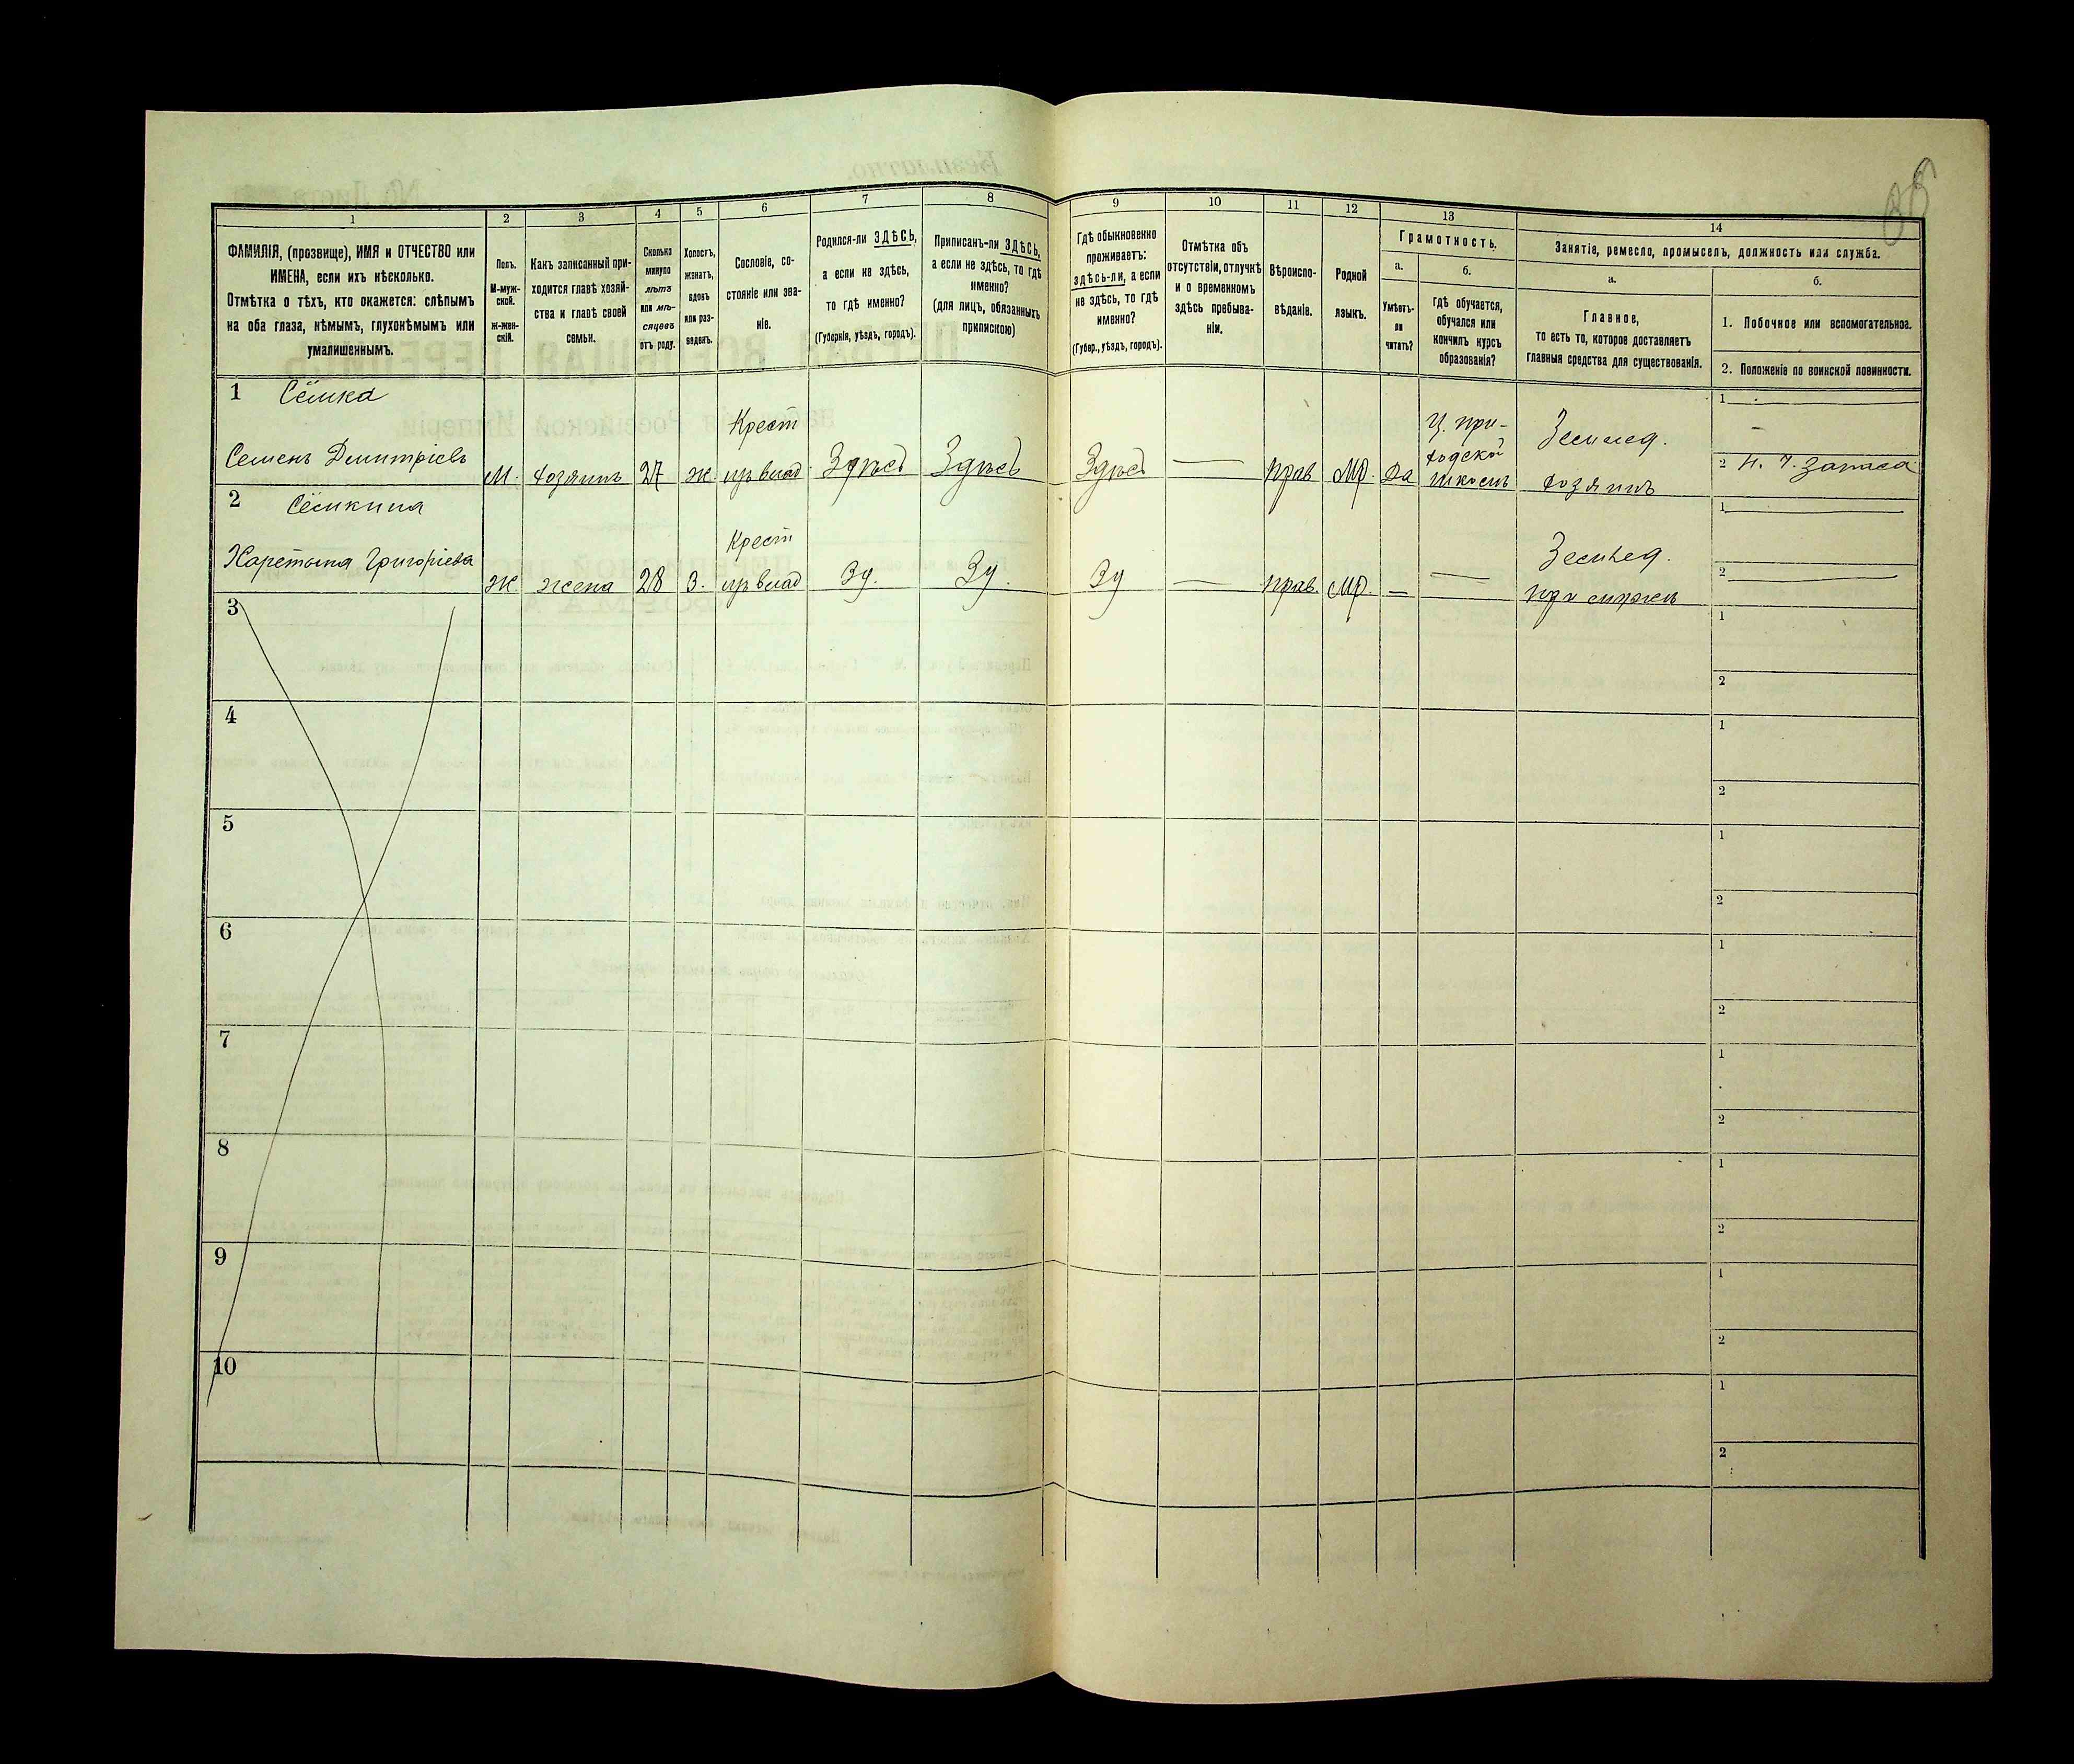 1 2 3 4 5 6 7 8 9 10 11 12 13 14
ФАМИЛІЯ, (прозвище), ИМЯ и ОТЧЕСТВО или
ИМЕНА, если ихъ нѣсколько.
Отмѣтка о тѣхъ, кто окажется: слѣпымъ
на оба глаза, нѣмымъ, глухонѣмымъ или
умалишеннымъ.
Полъ.
М-муж-
ской.
ж-жен-
скій.
Какъ записанный при-
ходится главѣ хозяй-
ства и главѣ своей
семьи.
Сколько
минуло
лѣтъ
или мѣ-
сяцевъ
отъ роду.
Холостъ,
женатъ,
вдовъ
или раз-
веденъ.
Сословіе, со-
стояніе или зва-
ніе.
Родился-ли ЗДѢСЬ,
а если не здѣсь,
то гдѣ именно?
(Губернія, уѣздъ, городъ).
Приписанъ-ли ЗДѢСЬ,
а если не здѣсь, то гдѣ
именно?
(для лицъ, обязанныхъ
припискою)
Гдѣ обыкновенно
проживаетъ:
здѣсь-ли, а если
не здѣсь, то гдѣ
именно?
(Губер., уѣздъ, городъ).
Отмѣтка объ
отсутствіи, отлучкѣ
и о временномъ
здѣсь пребыва-
ніи.
Вѣроиспо-
вѣданіе.
Родной
языкъ.
Грамотность.
а.
Умѣетъ-
ли
читать?
б.
гдѣ обучается,
обучался или
кончилъ курсъ
образованія?
Занятіе, ремесло, промыселъ, должность или служба.
а.
Главное,
то есть то, которое доставляетъ
главныя средства для существованія.
б.
1. Побочное или вспомогательное.
2. Положеніе по воинской повинности.
1 Сёмка
Семенъ Дмитріевъ М. хозяинъ 27 ж.
Крест
из влад
Здѣсь Здѣсь Здѣсь — Прав Мр. Да
Ц. при-
ходской
школѣ
Землед.
хозяинъ
1 —
2 запаса
2 Сёмкина
Григоріева Ж. жена 28 З.
Крест
из влад
Зд. Зд. Зд — Прав. Мр. — —
Землед.
при мужѣ
1 —
2 —
3
1
2
4
1
2
5
1
2
6
1
2
7
1
2
8
1
2
9
1
2
10
1
2